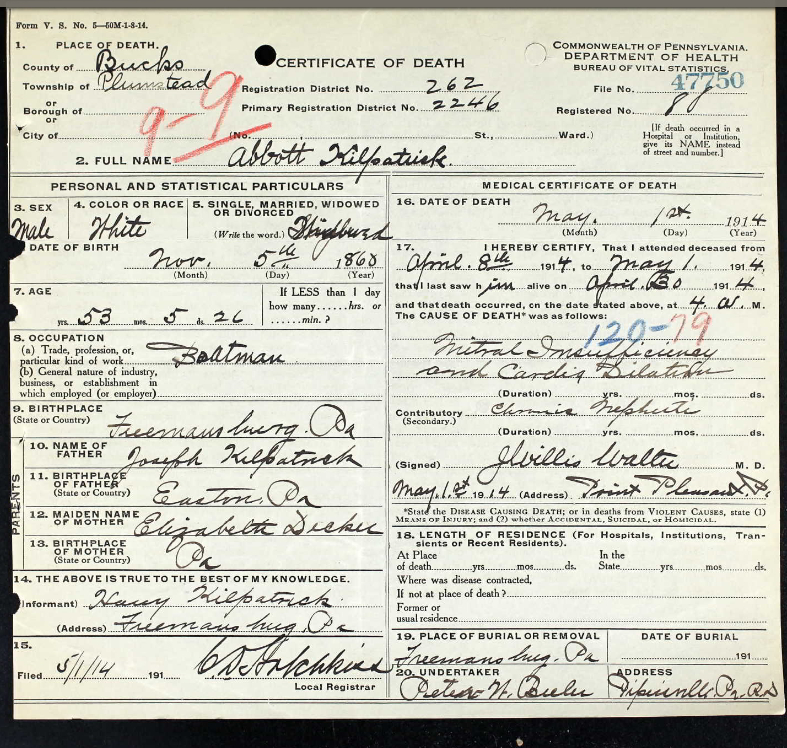 Form V. S. No. 5—50M-1-8-14.
1. PLACE OF DEATH.
County of Bucks
Township of Plumstead
or
Borough of
or
City of
CERTIFICATE OF DEATH
Registration District No. 262
Primary Registration District No. 2246
(No. , St., Ward.)
COMMONWEALTH OF PENNSYLVANIA.
DEPARTMENT OF HEALTH
BUREAU OF VITAL STATISTICS.
File No. 47750
Registered No.
[If death occurred in a
Hospital or Institution,
give its NAME instead
of street and number.]
9-9
2. FULL NAME Abbott Kilpatrick.
PERSONAL AND STATISTICAL PARTICULARS
3. SEX
Male
4. COLOR OR RACE
White
5. SINGLE, MARRIED, WIDOWED
OR DIVORCED
(Write the word.)
DATE OF BIRTH
Nov. 5th 1860
(Month) (Day) (Year)
7. AGE
yrs. 53 mos. 5 ds. 26
If LESS than 1 day
how many......hrs. or
......min.?
8. OCCUPATION
(a) Trade, profession, or,
particular kind of work Boatman
(b) General nature of industry,
business, or establishment in
which employed (or employer)
9. BIRTHPLACE
(State or Country) Freemansburg. Pa
PARENTS
10. NAME OF
FATHER Joseph Kilpatrick
11. BIRTHPLACE
OF FATHER
(State or Country) Easton, Pa
12. MAIDEN NAME
OF MOTHER Elizabeth Decker
13. BIRTHPLACE
OF MOTHER
(State or Country) Pa
14. THE ABOVE IS TRUE TO THE BEST OF MY KNOWLEDGE.
Informant) Harry Kilpatrick.
(Address) Freemansburg, Pa
15.
Filed 5/1/14 191 C D Hotchkiss
Local Registrar
MEDICAL CERTIFICATE OF DEATH
16. DATE OF DEATH
May. 1st. 1914
(Month) (Day) (Year)
17. I HEREBY CERTIFY, That I attended deceased from
April. 8th 1914, to May 1. 1914,
that I last saw him alive on April. 30 1914,
and that death occurred, on the date stated above, at 4 a. M.
The CAUSE OF DEATH* was as follows:
120-79
Mitral Insufficiency
and Cardiac Dilation
(Duration) yrs. mos. ds.
Contributory Chronic Nephritis
(Secondary.)
(Duration) yrs. mos. ds.
(Signed) J Willis Walter M. D.
May. 1st 1914 (Address) Point Pleasant, Pa.
*State the DISEASE CAUSING DEATH; or in deaths from VIOLENT CAUSES, state (1)
MEANS OF INJURY; and (2) whether ACCIDENTAL, SUICIDAL, or HOMICIDAL.
18. LENGTH OF RESIDENCE (For Hospitals, Institutions, Tran-
sients or Recent Residents).
At Place
of death yrs. mos. ds.
In the
State yrs. mos. ds.
Where was disease contracted,
If not at place of death?
Former or
usual residence
19. PLACE OF BURIAL OR REMOVAL
Freemansburg. Pa
DATE OF BURIAL
191
20. UNDERTAKER
Peter W.
ADDRESS
Pipersville. Pa.